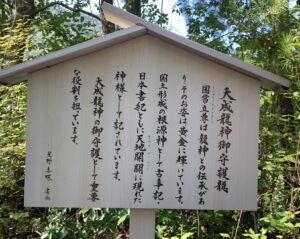 天成龍神御守護親
国常立尊は龍神との伝承があ
り、そのお姿は黄金に輝いています。
国土形成の根源神として古事記、
日本書紀ともに天地開闢に現れた
神様として記されています。
天成龍神の御守護として重要
な役割を担っています。